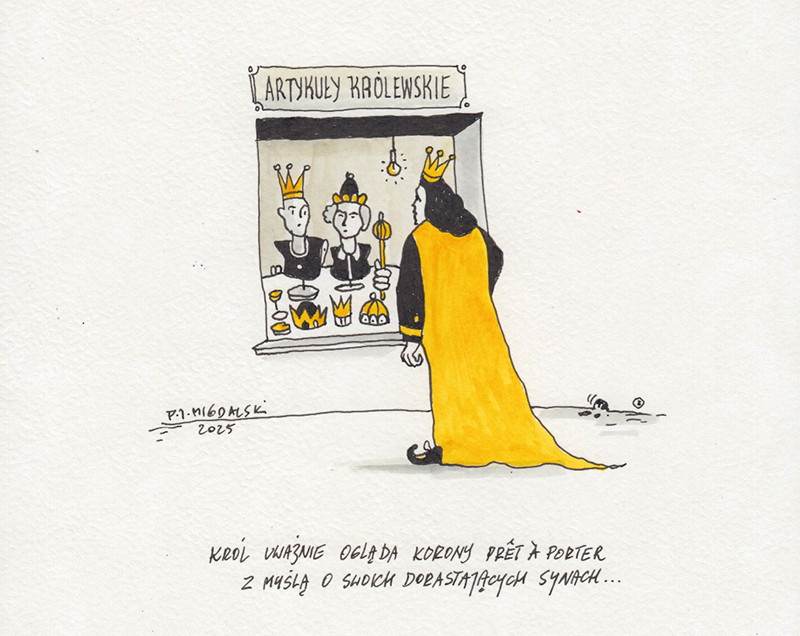 ARTYKUŁY KRÓLEWSKIE
P.J. MIGDALSKI
2025
KRÓL UWAŻNIE OGLĄDA KORONY PRÊT À PORTER
Z MYŚLĄ O SWOICH DORASTAJĄCYCH SYNACH...